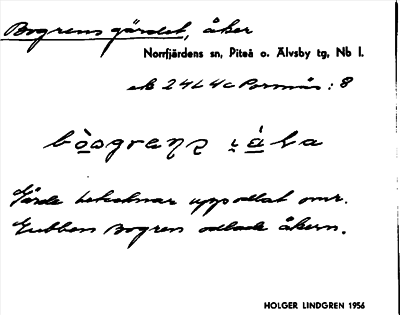 Bogrens gärdet, åker
Norrfjärdens sn, Piteå o. Älvsby tg, Nb l.
ek 24L4c Porsnäs : 8
bo̲sgrens i̲a̲ba
Gärde betecknar uppodlat omr.
Gubben Bogren odlade åkern.
HOLGER LINDGREN 1956